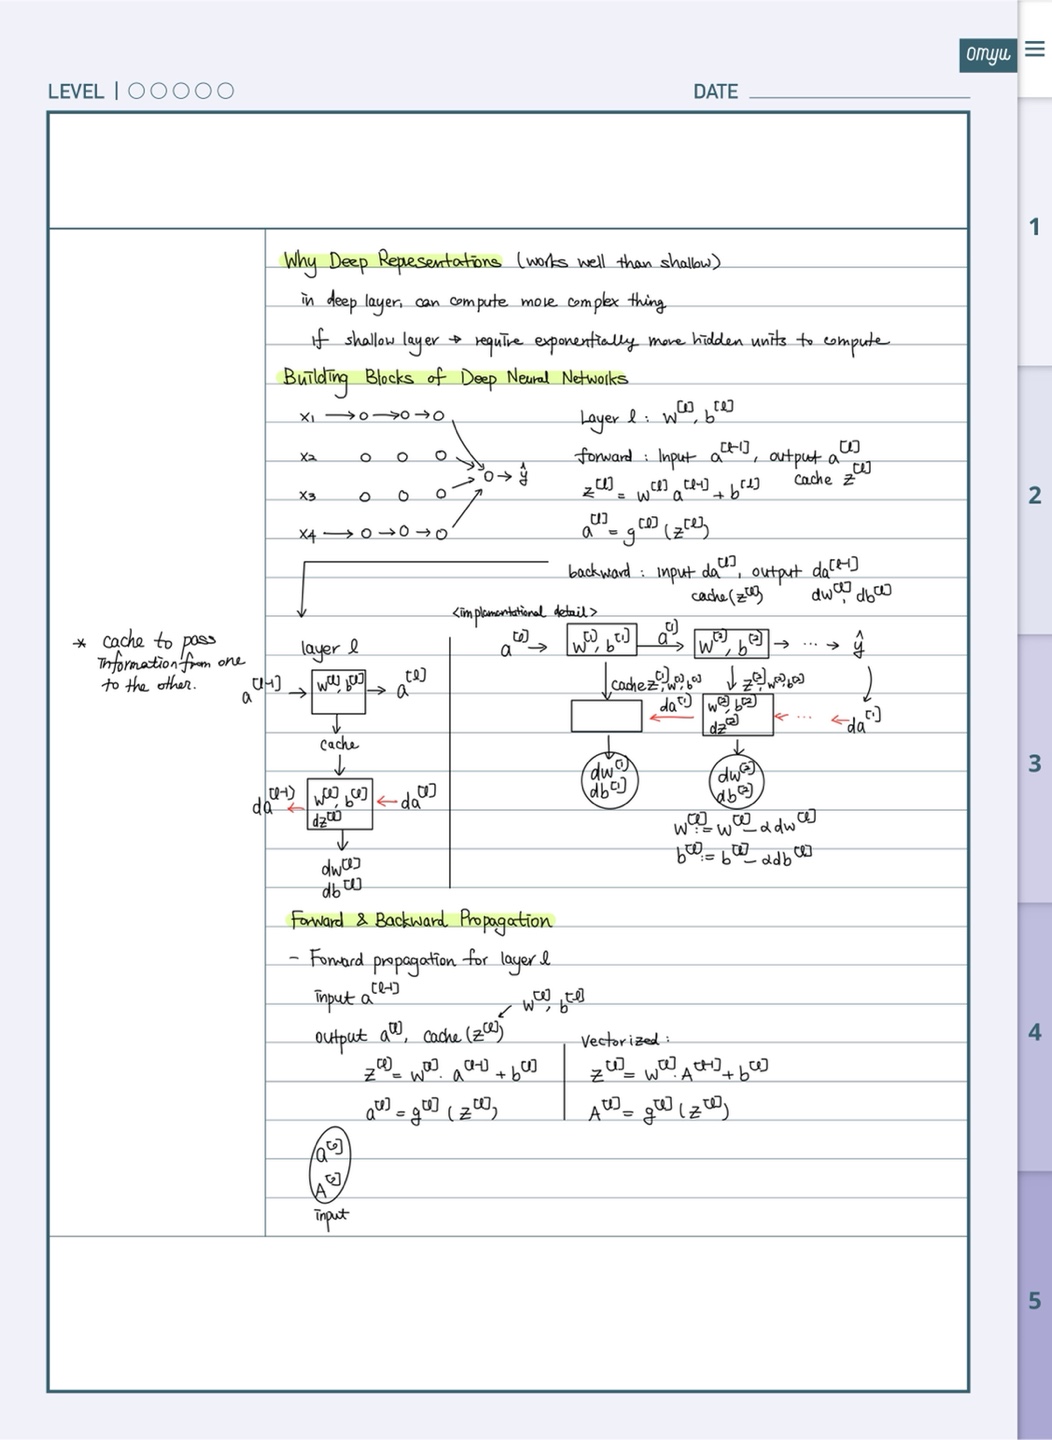 omyu
LEVEL | ○○○○○
DATE
1
2
3
4
5
Why Deep Representations (works well than shallow)
in deep layer, can compute more complex thing
If shallow layer → require exponentially more hidden units to compute
Building Blocks of Deep Neural Networks
x1 → o → o → o
x2 o o o
x3 o o o
x4 → o → o → o
o → ŷ
Layer l : w[l], b[l]
forward : Input a[l-1], output a[l]
cache z[l]
z[l] = w[l] a[l-1] + b[l]
a[l] = g[l] (z[l])
backward : input da[l], output da[l-1]
cache(z[l]) dw[l], db[l]
* cache to pass
information from one
to the other.
layer l
a[l-1] → w[l], b[l] → a[l]
cache
da[l-1] ← w[l], b[l] ← da[l]
dz[l]
dw[l]
db[l]
<implamentational detail>
a[0] → w[1], b[1] a[1] → w[2], b[2] → ... → ŷ
cache z[1], w[1], b[1] z[2], w[2], b[2]
da[1] w[2], b[2] ← ... ← da[1]
dz[2]
dw[1]
db[1]
dw[2]
db[2]
w[l] := w[l] - αdw[l]
b[l] := b[l] - αdb[l]
Forward & Backward Propagation
- Forward propagation for layer l
input a[l-1]
w[l], b[l]
output a[l], cache (z[l])
z[l] = w[l] · a[l-1] + b[l]
a[l] = g[l] (z[l])
Vectorized :
z[l] = w[l] · A[l-1] + b[l]
A[l] = g[l] (z[l])
a[0]
A[0]
input